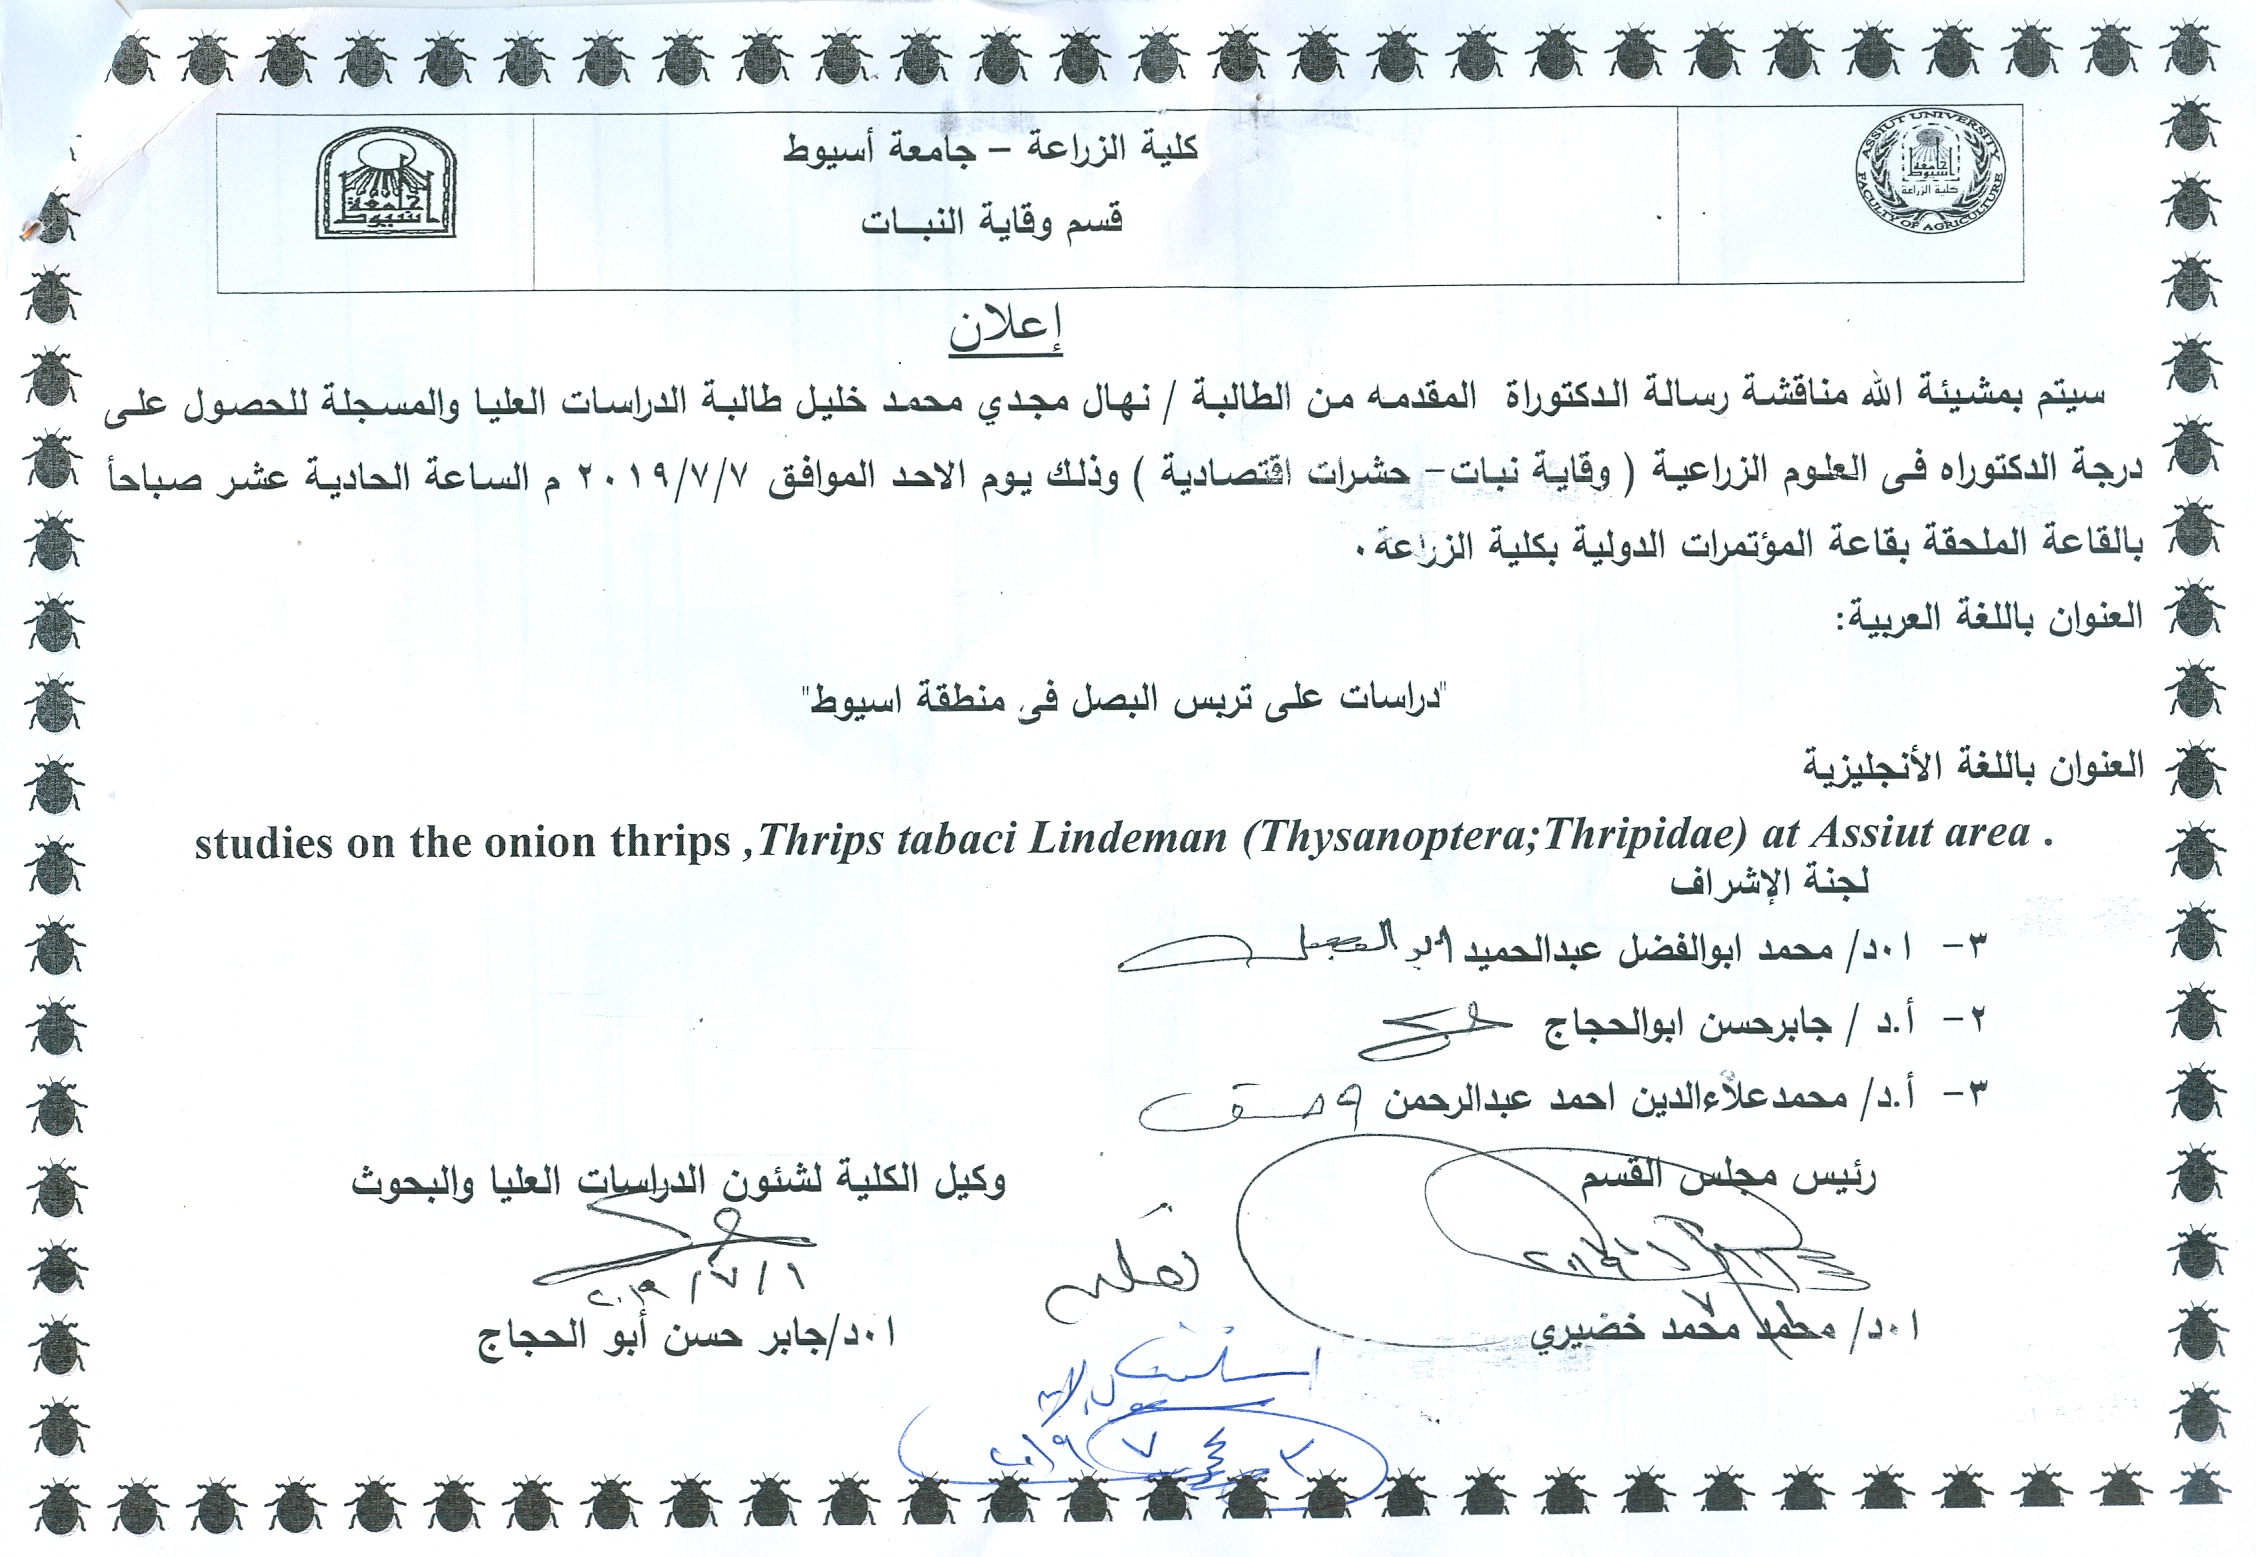 كلية الزراعة – جامعة أسيوط
قسم وقاية النبــات
ASSIUT UNIVERSITY
جامعة أسيوط
كلية الزراعة
FACULTY OF AGRICULTURE
جامعة أسيوط
إعلان
سيتم بمشيئة الله مناقشة رسالة الدكتوراة المقدمه من الطالبة / نهال مجدي محمد خليل طالبة الدراسات العليا والمسجلة للحصول على
درجة الدكتوراه فى العلوم الزراعية ( وقاية نبات– حشرات اقتصادية ) وذلك يوم الاحد الموافق ٢٠١٩/٧/٧ م الساعة الحادية عشر صباحأ
بالقاعة الملحقة بقاعة المؤتمرات الدولية بكلية الزراعة ٠
العنوان باللغة العربية:
"دراسات على تربس البصل فى منطقة اسيوط"
العنوان باللغة الأنجليزية
studies on the onion thrips ,Thrips tabaci Lindeman (Thysanoptera;Thripidae) at Assiut area .
لجنة الإشراف
٣- ا٠د/ محمد ابوالفضل عبدالحميد
٢- أ.د / جابرحسن ابوالحجاج
٣- أ.د/ محمدعلاءالدين احمد عبدالرحمن
رئيس مجلس القسم
وكيل الكلية لشئون الدراسات العليا والبحوث
٢٠١٩/٧/١
ا٠د/ محمد محمد خضيري
ا٠د/جابر حسن أبو الحجاج